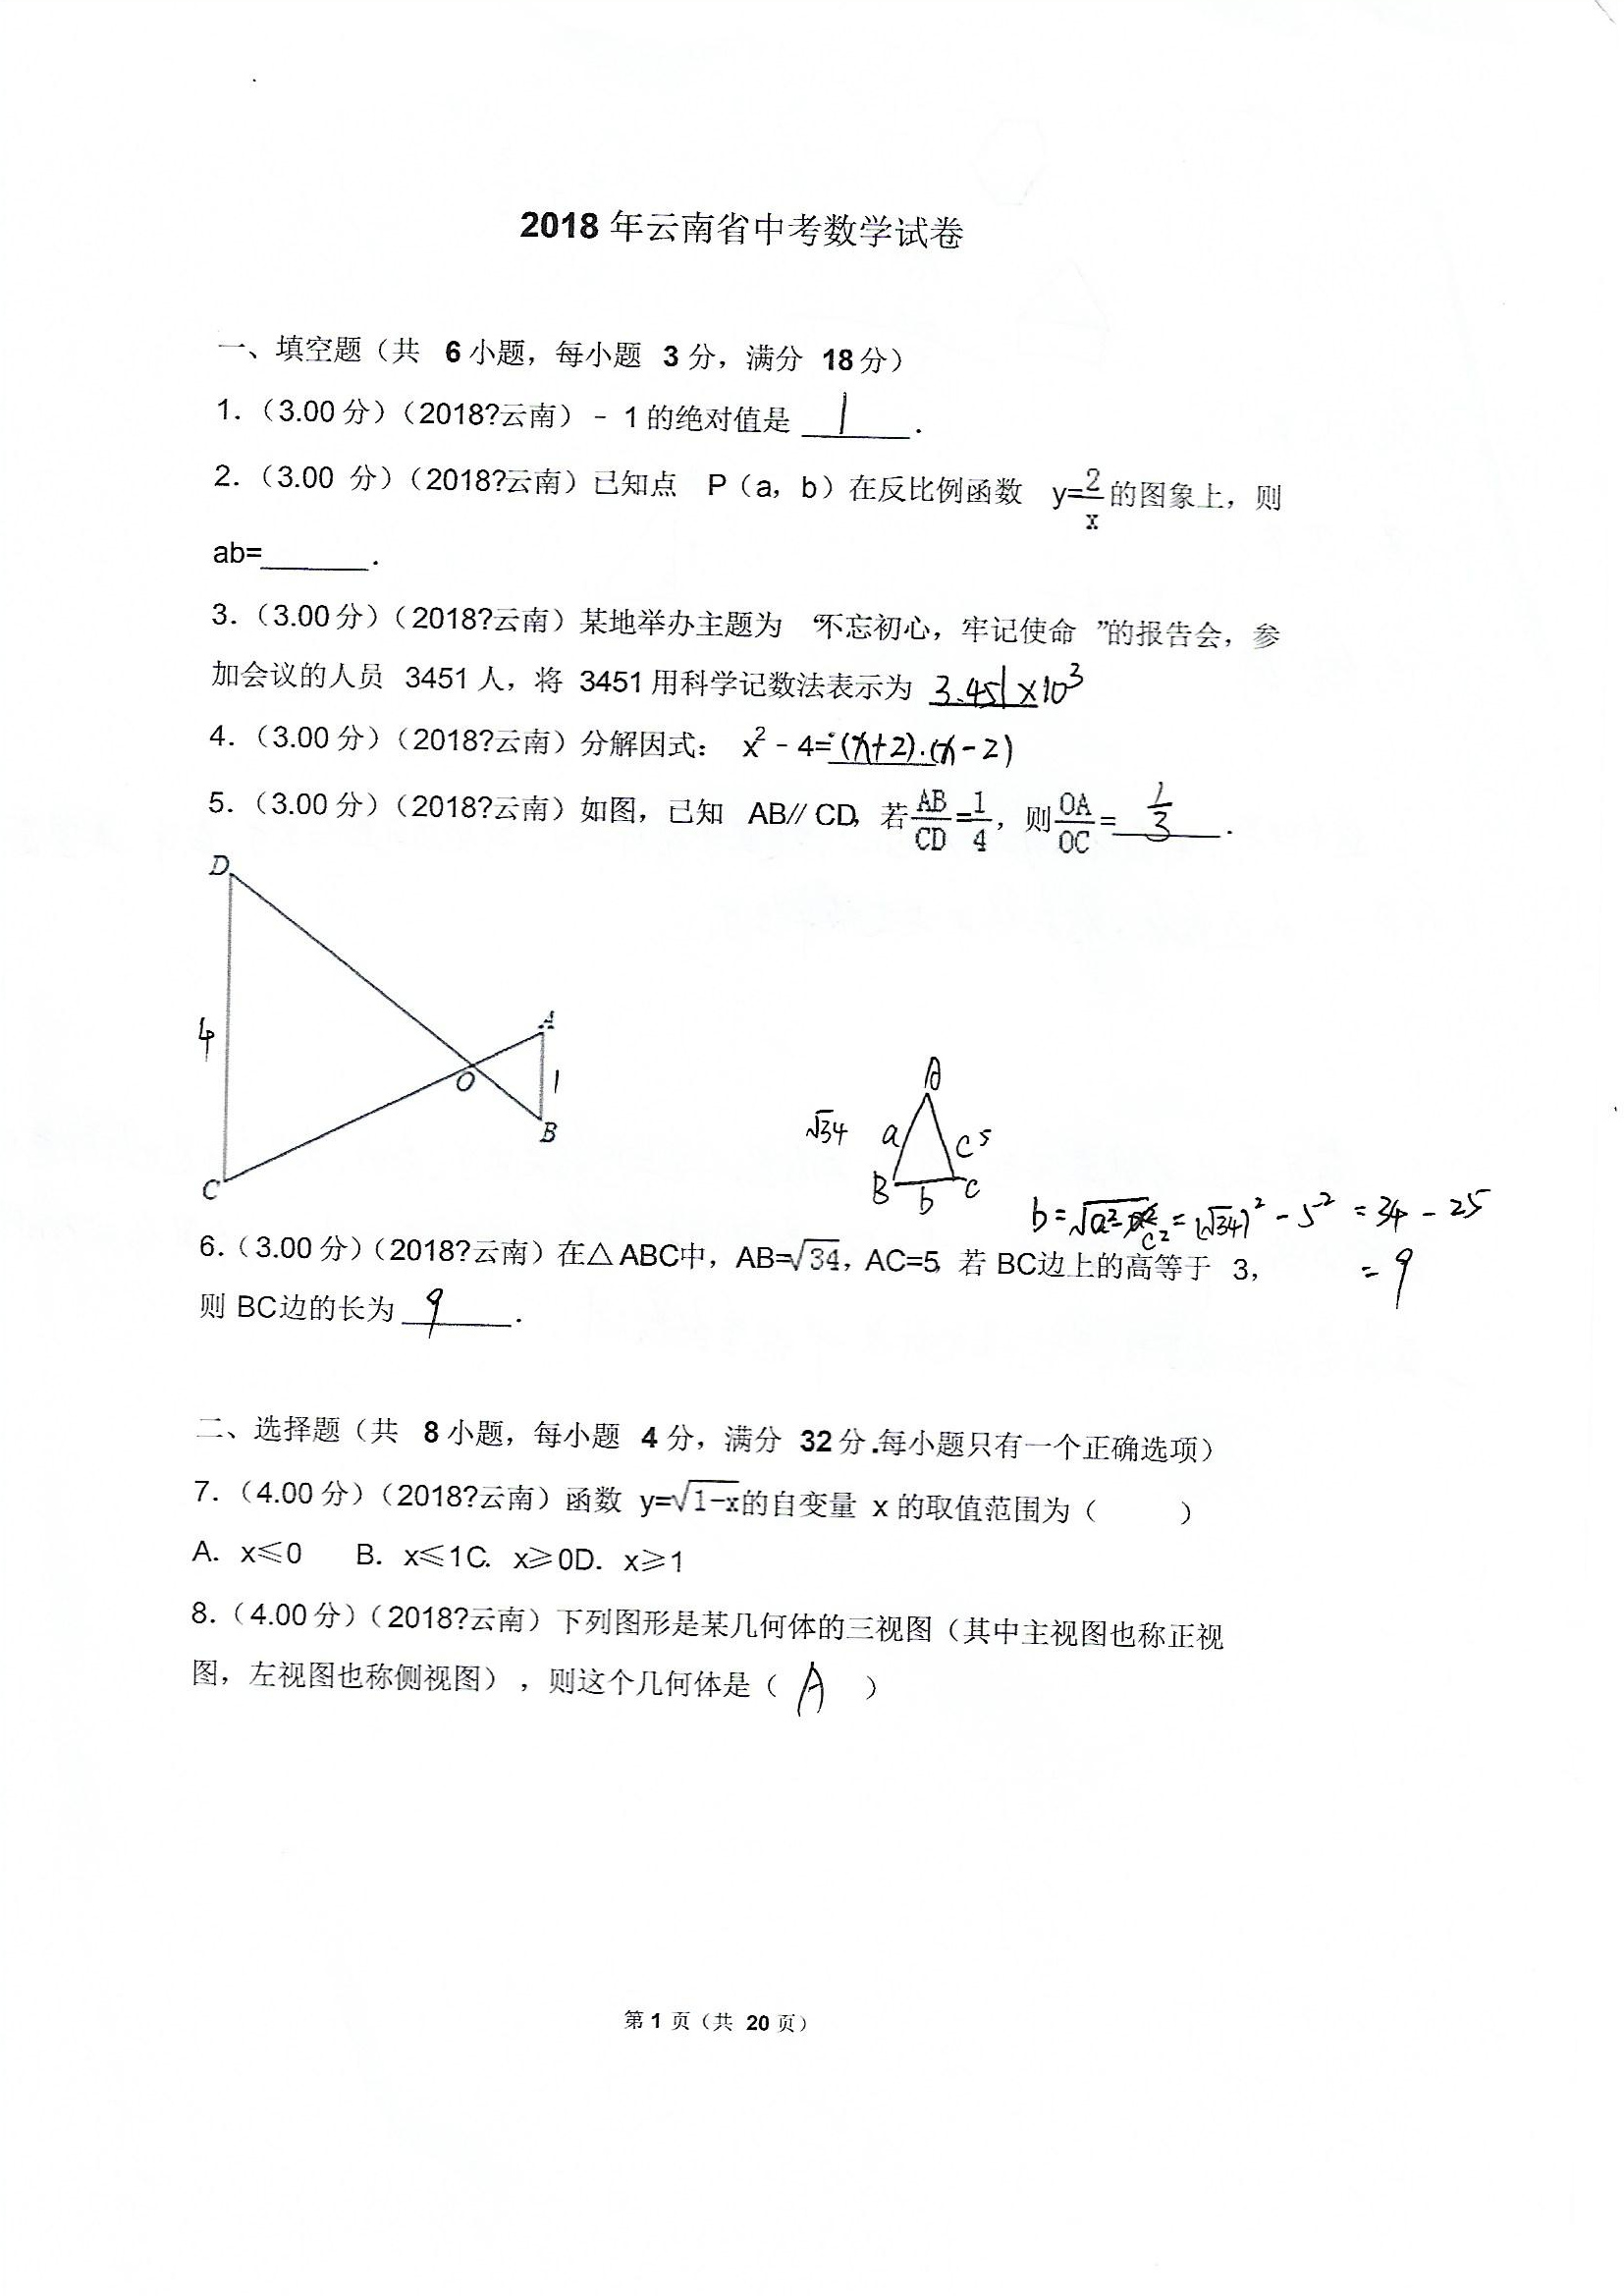 2018 年云南省中考数学试卷
一、填空题（共 6 小题，每小题 3 分，满分 18 分）
1．（3.00 分）（2018?云南）﹣1 的绝对值是 1 ．
2．（3.00 分）（2018?云南）已知点 P（a，b）在反比例函数 y=2/x 的图象上，则
ab=______．
3．（3.00 分）（2018?云南）某地举办主题为 “不忘初心，牢记使命 ”的报告会，参
加会议的人员 3451 人，将 3451 用科学记数法表示为 3.451×10³
4．（3.00 分）（2018?云南）分解因式： x²﹣4= (x+2)·(x-2)
5．（3.00 分）（2018?云南）如图，已知 AB∥CD，若 AB/CD=1/4，则 OA/OC= 1/3 ．
D
4
A
O
1
B
C
A
√34 a c 5
B b C
b=√a²-c² =(√34)²-5² =34-25
6．（3.00 分）（2018?云南）在△ABC中，AB=√34，AC=5，若 BC边上的高等于 3，
=9
则 BC边的长为 9 ．
二、选择题（共 8 小题，每小题 4 分，满分 32 分．每小题只有一个正确选项）
7．（4.00 分）（2018?云南）函数 y=√1-x的自变量 x 的取值范围为（ ）
A．x≤0 B．x≤1C．x≥0D．x≥1
8．（4.00 分）（2018?云南）下列图形是某几何体的三视图（其中主视图也称正视
图，左视图也称侧视图），则这个几何体是（ A ）
第 1 页（共 20 页）